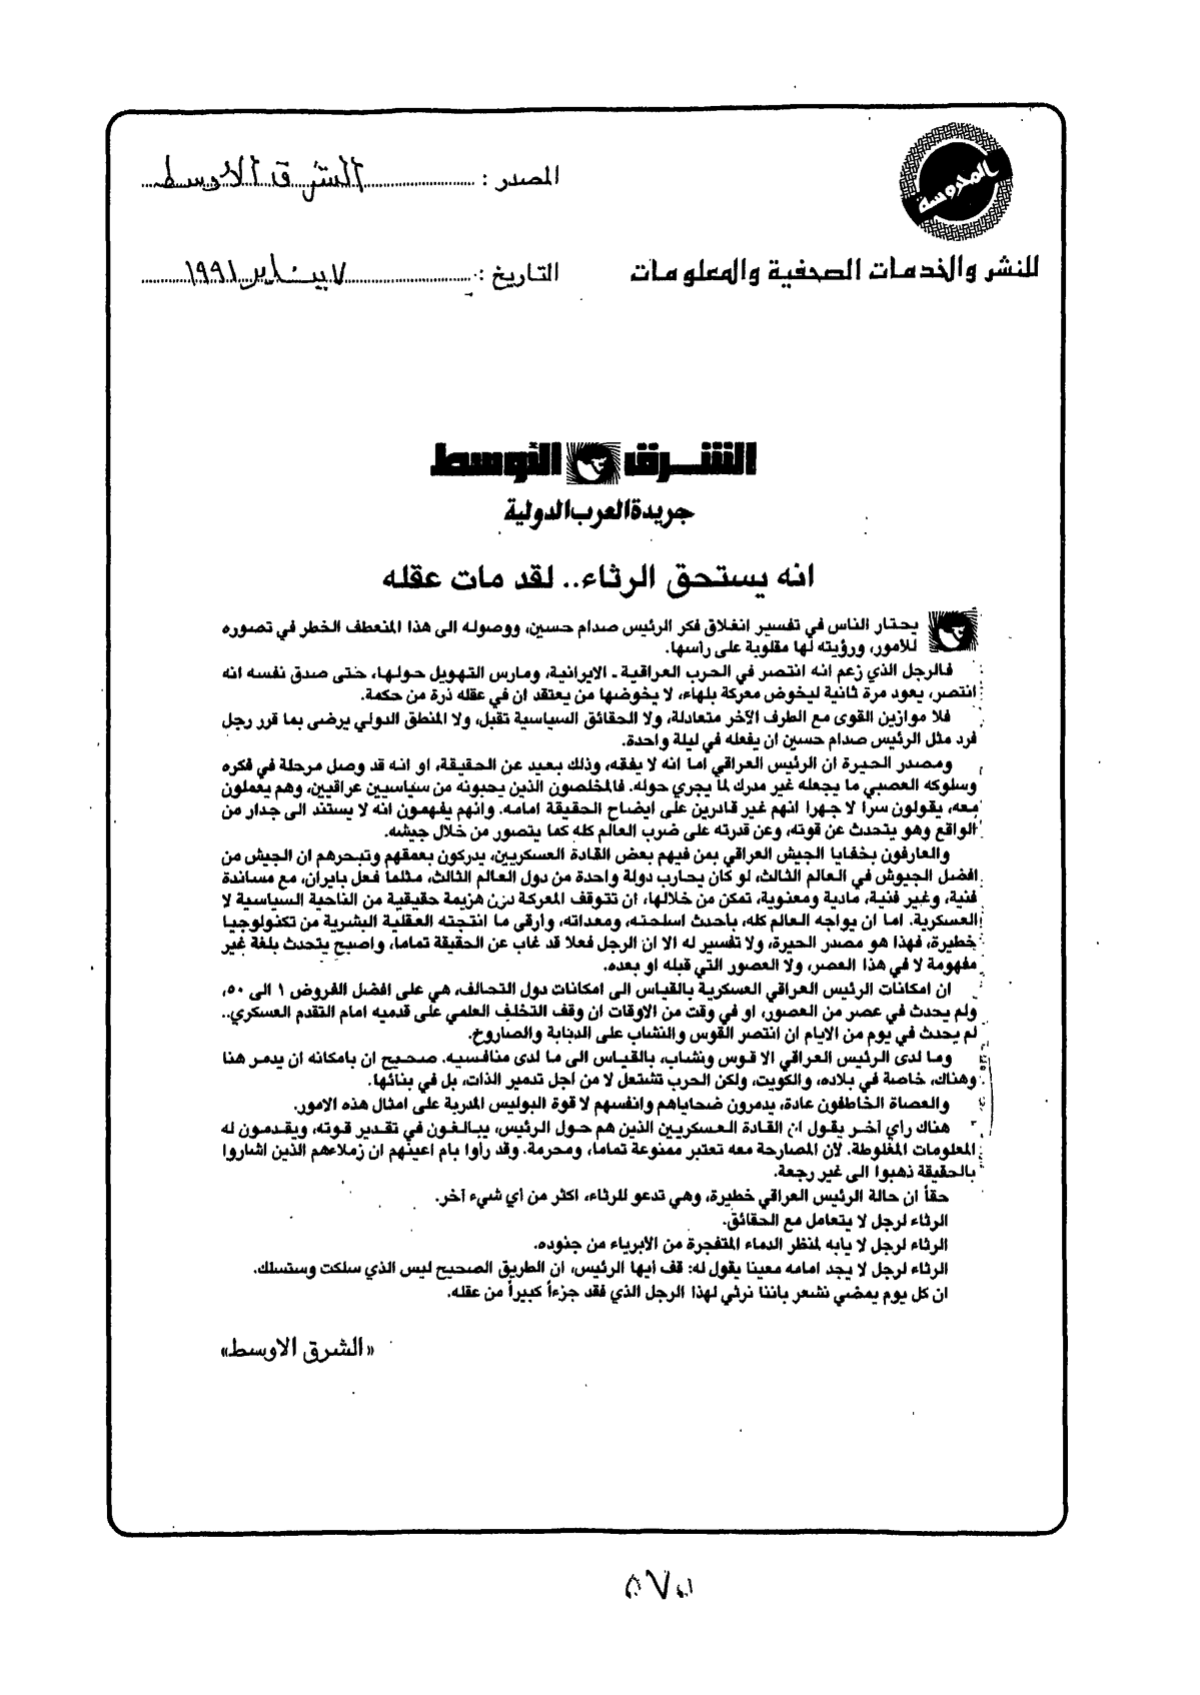 المدروسة
للنشر والخدمات الصحفية والمعلومات
المصدر : الشرق الأوسط
التاريخ : ٧ يناير ١٩٩١
الشرق الأوسط
جريدة العرب الدولية
انه يستحق الرثاء.. لقد مات عقله
يحتار الناس في تفسير انغلاق فكر الرئيس صدام حسين، ووصوله الى هذا المنعطف الخطر في تصوره
للامور، ورؤيته لها مقلوبة على رأسها.
فالرجل الذي زعم انه انتصر في الحرب العراقية ـ الايرانية، ومارس التهويل حولها، حتى صدق نفسه انه
انتصر، يعود مرة ثانية ليخوض معركة بلهاء، لا يخوضها من يعتقد ان في عقله ذرة من حكمة.
فلا موازين القوى مع الطرف الآخر متعادلة، ولا الحقائق السياسية تقبل، ولا المنطق الدولي يرضى بما قرر رجل
فرد مثل الرئيس صدام حسين ان يفعله في ليلة واحدة.
ومصدر الحيرة ان الرئيس العراقي اما انه لا يفقه، وذلك بعيد عن الحقيقة، او انه قد وصل مرحلة في فكره
وسلوكه العصبي ما يجعله غير مدرك لما يجري حوله. فالمخلصون الذين يحبونه من سياسيين عراقيين، وهم يعملون
معه، يقولون سرا لا جهرا انهم غير قادرين على ايضاح الحقيقة امامه. وانهم يفهمون انه لا يستند الى جدار من
الواقع وهو يتحدث عن قوته، وعن قدرته على ضرب العالم كله كما يتصور من خلال جيشه.
والعارفون بخفايا الجيش العراقي بمن فيهم بعض القادة العسكريين، يدركون بعمقهم وتبحرهم ان الجيش من
افضل الجيوش في العالم الثالث، لو كان يحارب دولة واحدة من دول العالم الثالث، مثلما فعل بايران، مع مساندة
فنية، وغير فنية، مادية ومعنوية، تمكن من خلالها، ان تتوقف المعركة دون هزيمة حقيقية من الناحية السياسية لا
العسكرية. اما ان يواجه العالم كله، باحدث اسلحته، ومعداته، وأرقى ما انتجته العقلية البشرية من تكنولوجيا
خطيرة، فهذا هو مصدر الحيرة، ولا تفسير له الا ان الرجل فعلا قد غاب عن الحقيقة تماما، واصبح يتحدث بلغة غير
مفهومة لا في هذا العصر، ولا العصور التي قبله او بعده.
ان امكانات الرئيس العراقي العسكرية بالقياس الى امكانات دول التحالف، هي على افضل الفروض ١ الى ٥٠،
ولم يحدث في عصر من العصور، او في وقت من الاوقات ان وقف التخلف العلمي على قدميه امام التقدم العسكري..
لم يحدث في يوم من الايام ان انتصر القوس والنشاب على الدبابة والصاروخ.
وما لدى الرئيس العراقي الا قوس ونشاب، بالقياس الى ما لدى منافسيه. صحيح ان بامكانه ان يدمر هنا
وهناك، خاصة في بلاده، والكويت، ولكن الحرب تشتعل لا من اجل تدمير الذات، بل في بنائها.
والعصاة الخاطفون عادة، يدمرون ضحاياهم وانفسهم لا قوة البوليس المدربة على امثال هذه الامور.
هناك رأي آخر يقول ان القادة العسكريين الذين هم حول الرئيس، يبالغون في تقدير قوته، ويقدمون له
المعلومات المغلوطة. لأن المصارحة معه تعتبر ممنوعة تماما، ومحرمة. وقد رأوا بام اعينهم ان زملاءهم الذين اشاروا
بالحقيقة ذهبوا الى غير رجعة.
حقاً ان حالة الرئيس العراقي خطيرة، وهي تدعو للرثاء، اكثر من أي شيء آخر.
الرثاء لرجل لا يتعامل مع الحقائق.
الرثاء لرجل لا يابه لمنظر الدماء المتفجرة من الأبرياء من جنوده.
الرثاء لرجل لا يجد امامه معينا يقول له: قف أيها الرئيس، ان الطريق الصحيح ليس الذي سلكت وستسلك.
ان كل يوم يمضي نشعر باننا نرثي لهذا الرجل الذي فقد جزءاً كبيراً من عقله.
«الشرق الاوسط»